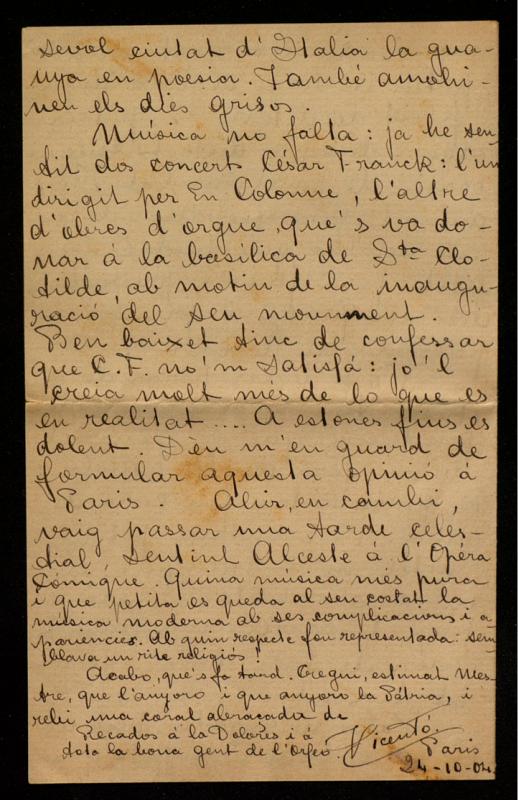 sevol ciutat d'Italia la gua-
nya en poesia. També amohi-
nen els dies grisos.
Música no falta: ja he sen-
tit dos concerts César Franck: l'un
dirigit per En Colonne, l'altre
d'obres d'orgue que's va do-
nar á la basílica de Sta Clo-
tilde, ab motiu de la inaugu-
ració del seu monument.
Ben baixet tinc de confessar
que C. F. no'm satisfá: jo'l
creia molt més de lo que es
en realitat.... A estones fins es
dolent. Dèu m'en guard de
formular aquesta opinió á
Paris. Ahir, en cambi,
vaig passar una tarde celes-
tial, sentint Alceste á l'Opéra
Comique. Quina música més pura
i que petita es queda al seu costat la
música moderna ab ses complicacions i a-
pariencies. Ab quin respecte fou representada: sem-
blava un rite religiós!
Acabo, que's fa tard. Cregui, estimat Mes-
tre, que l'anyoro i que anyoro la Pátria, i
rebi una coral abraçada de
Recados á la Dolores i á
tota la bona gent de l'Orfeó. Vicentó.
Paris
24-10-04